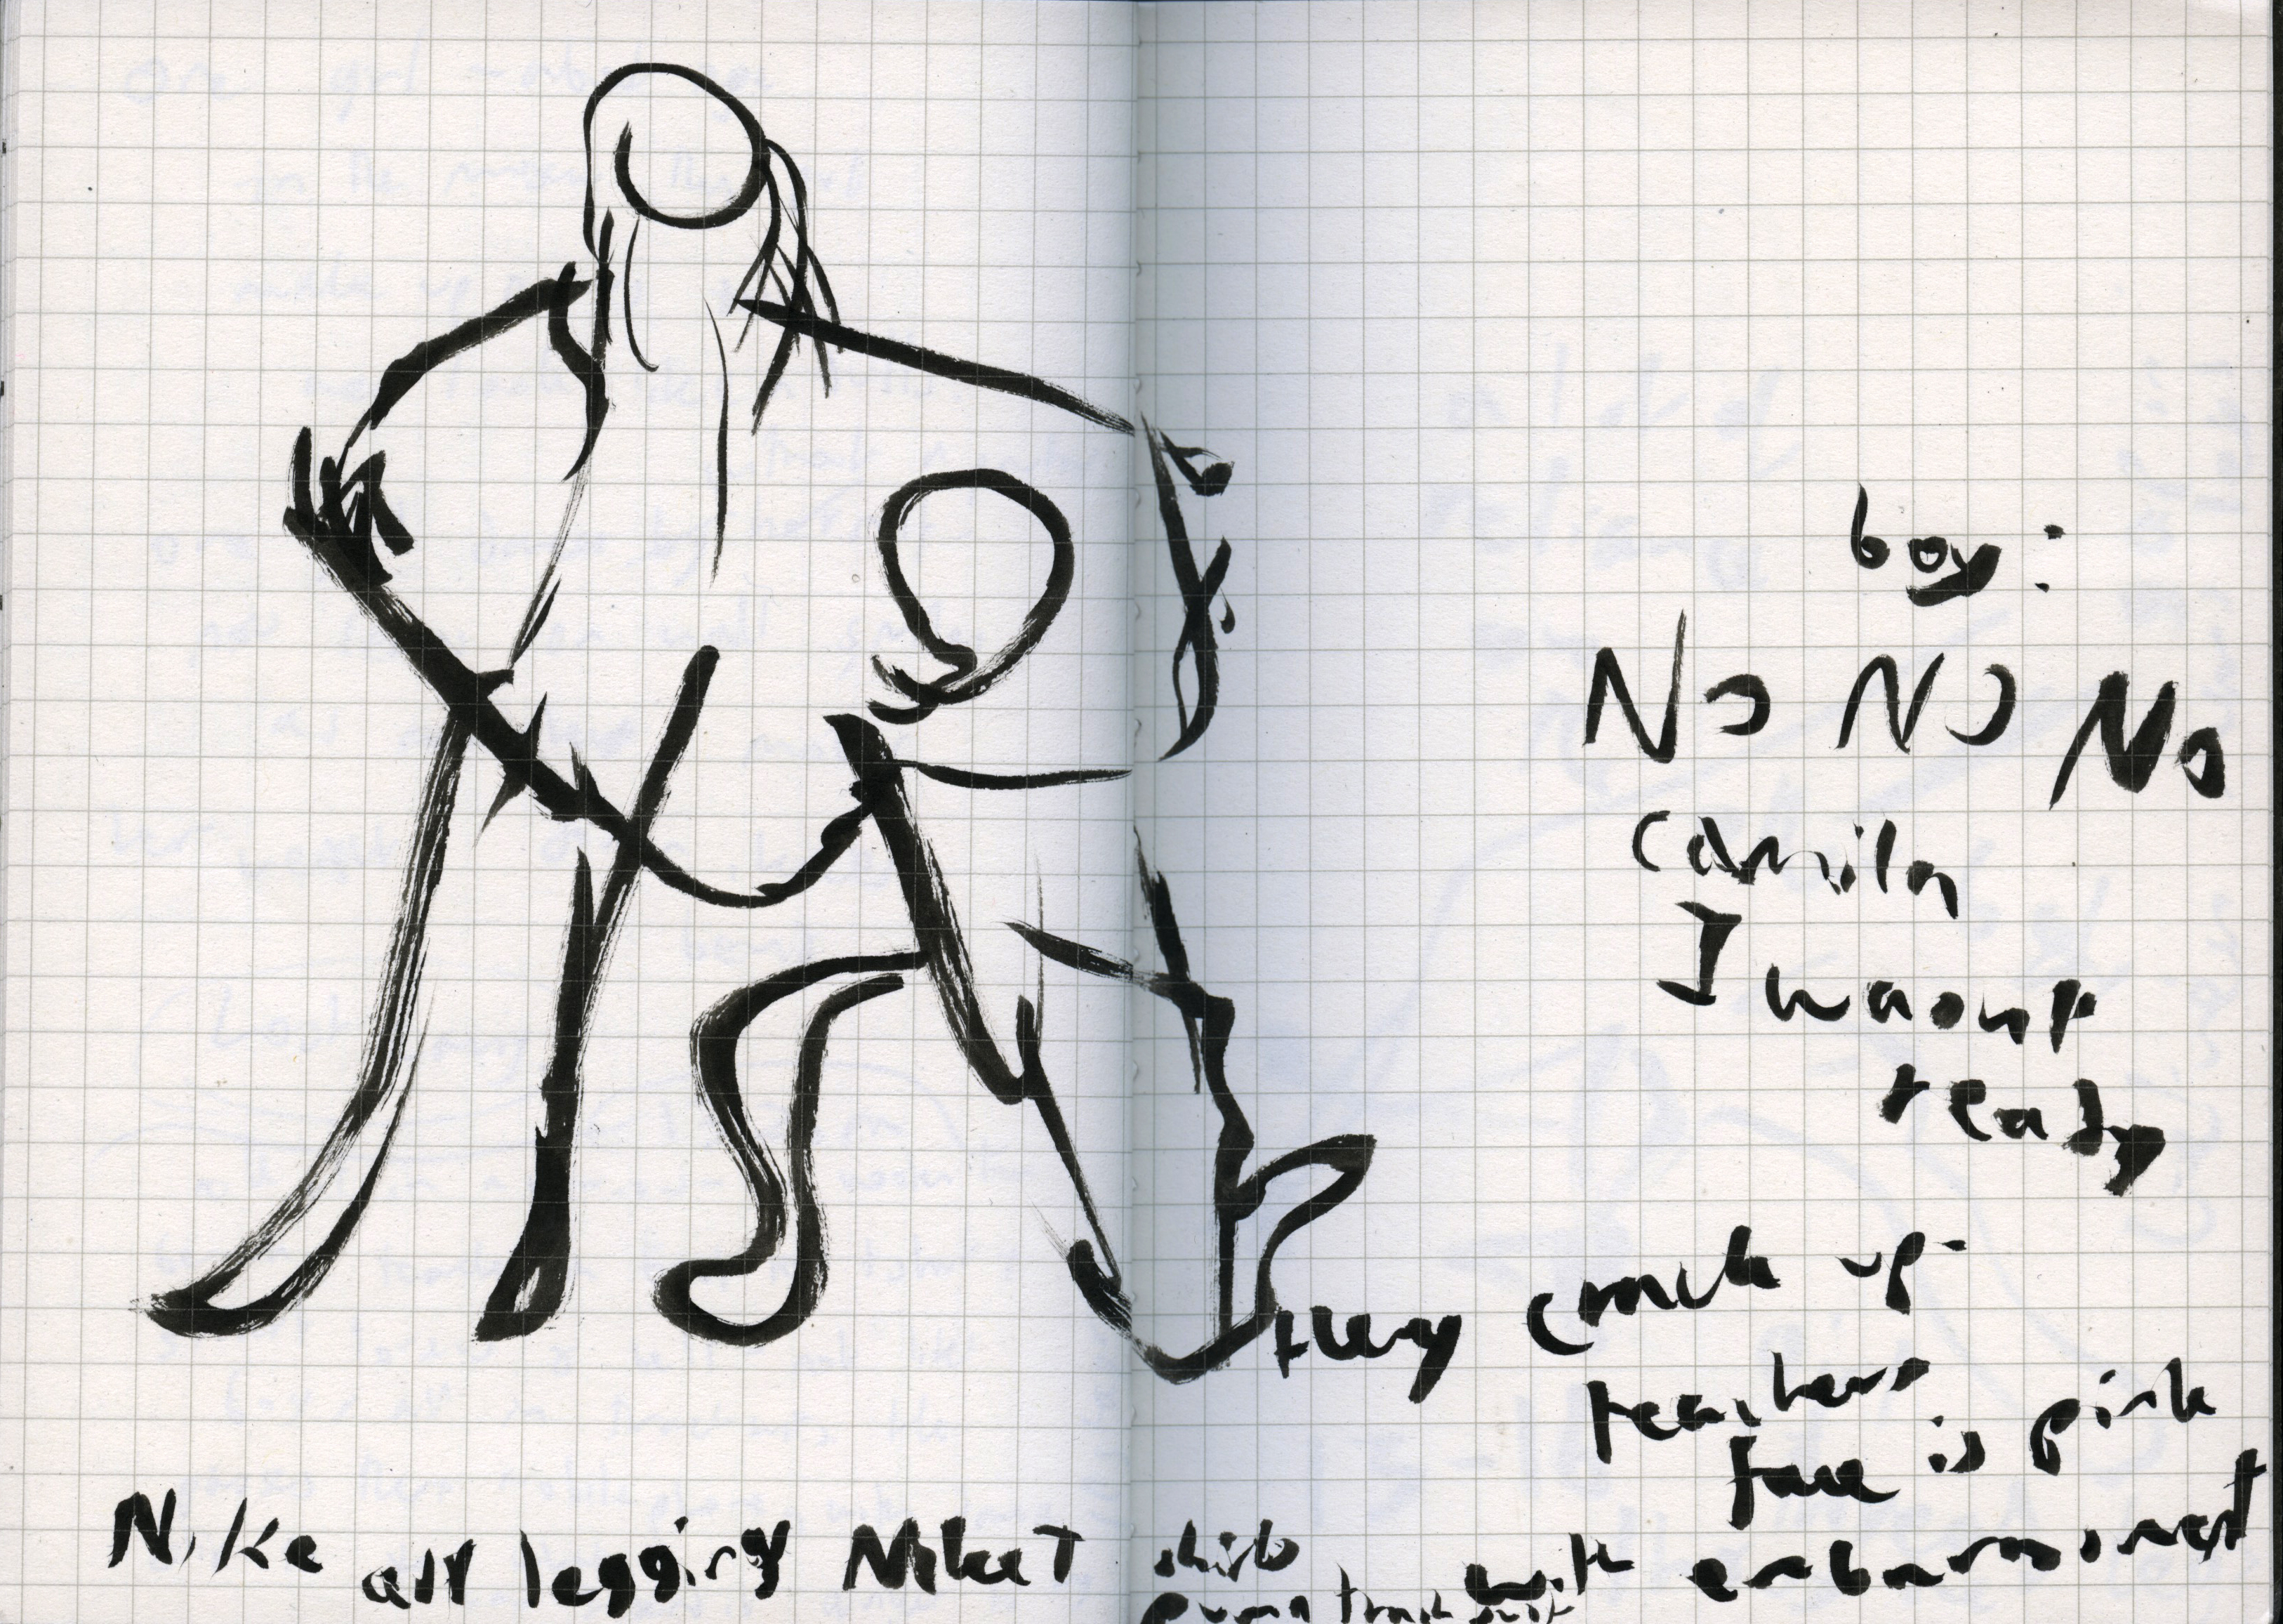 boy:
No NO No
Camila
I wasnt
ready
they crack up.
teachers
face is pink
with embarrassment
Nike all legging Nike T shirt
puma track suit